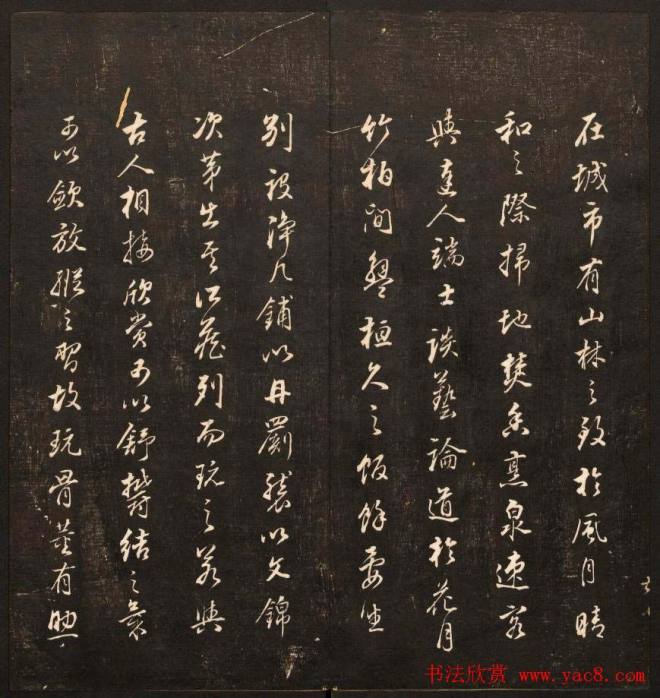 在城市有山林之致於風月晴
和之際掃地焚香烹泉速客
與達人端士談藝論道於花月
竹柏間盤桓久之飯餘晏坐
別設淨几鋪以丹罽襲以文錦
次第出其所藏列而玩之若與
古人相接欣賞可以舒鬱結之氣
可以斂放縱之習故玩骨董有助
书法欣赏 www.yac8.com